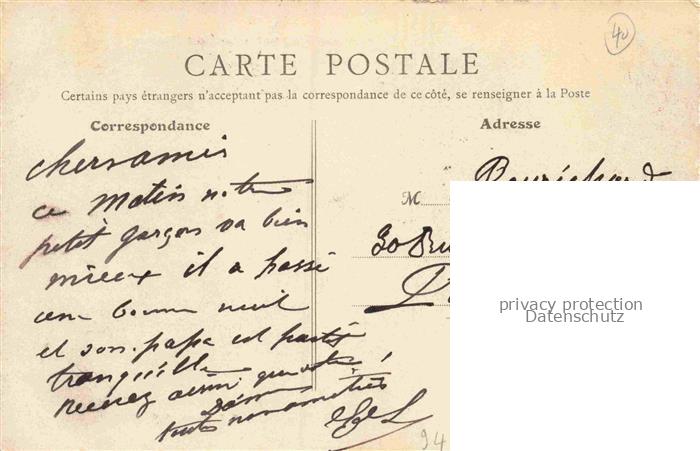 40
CARTE POSTALE
Certains pays étrangers n'acceptant pas la correspondance de ce côté, se renseigner à la Poste
Correspondance
Adresse
chers amis
ce matin notre
petit garçon va bien
mieux il a passé
une bonne nuit
et son papa est parti
tranquille
recevez ainsi que
toutes nos amitiés
M
30
94
privacy protection
Datenschutz